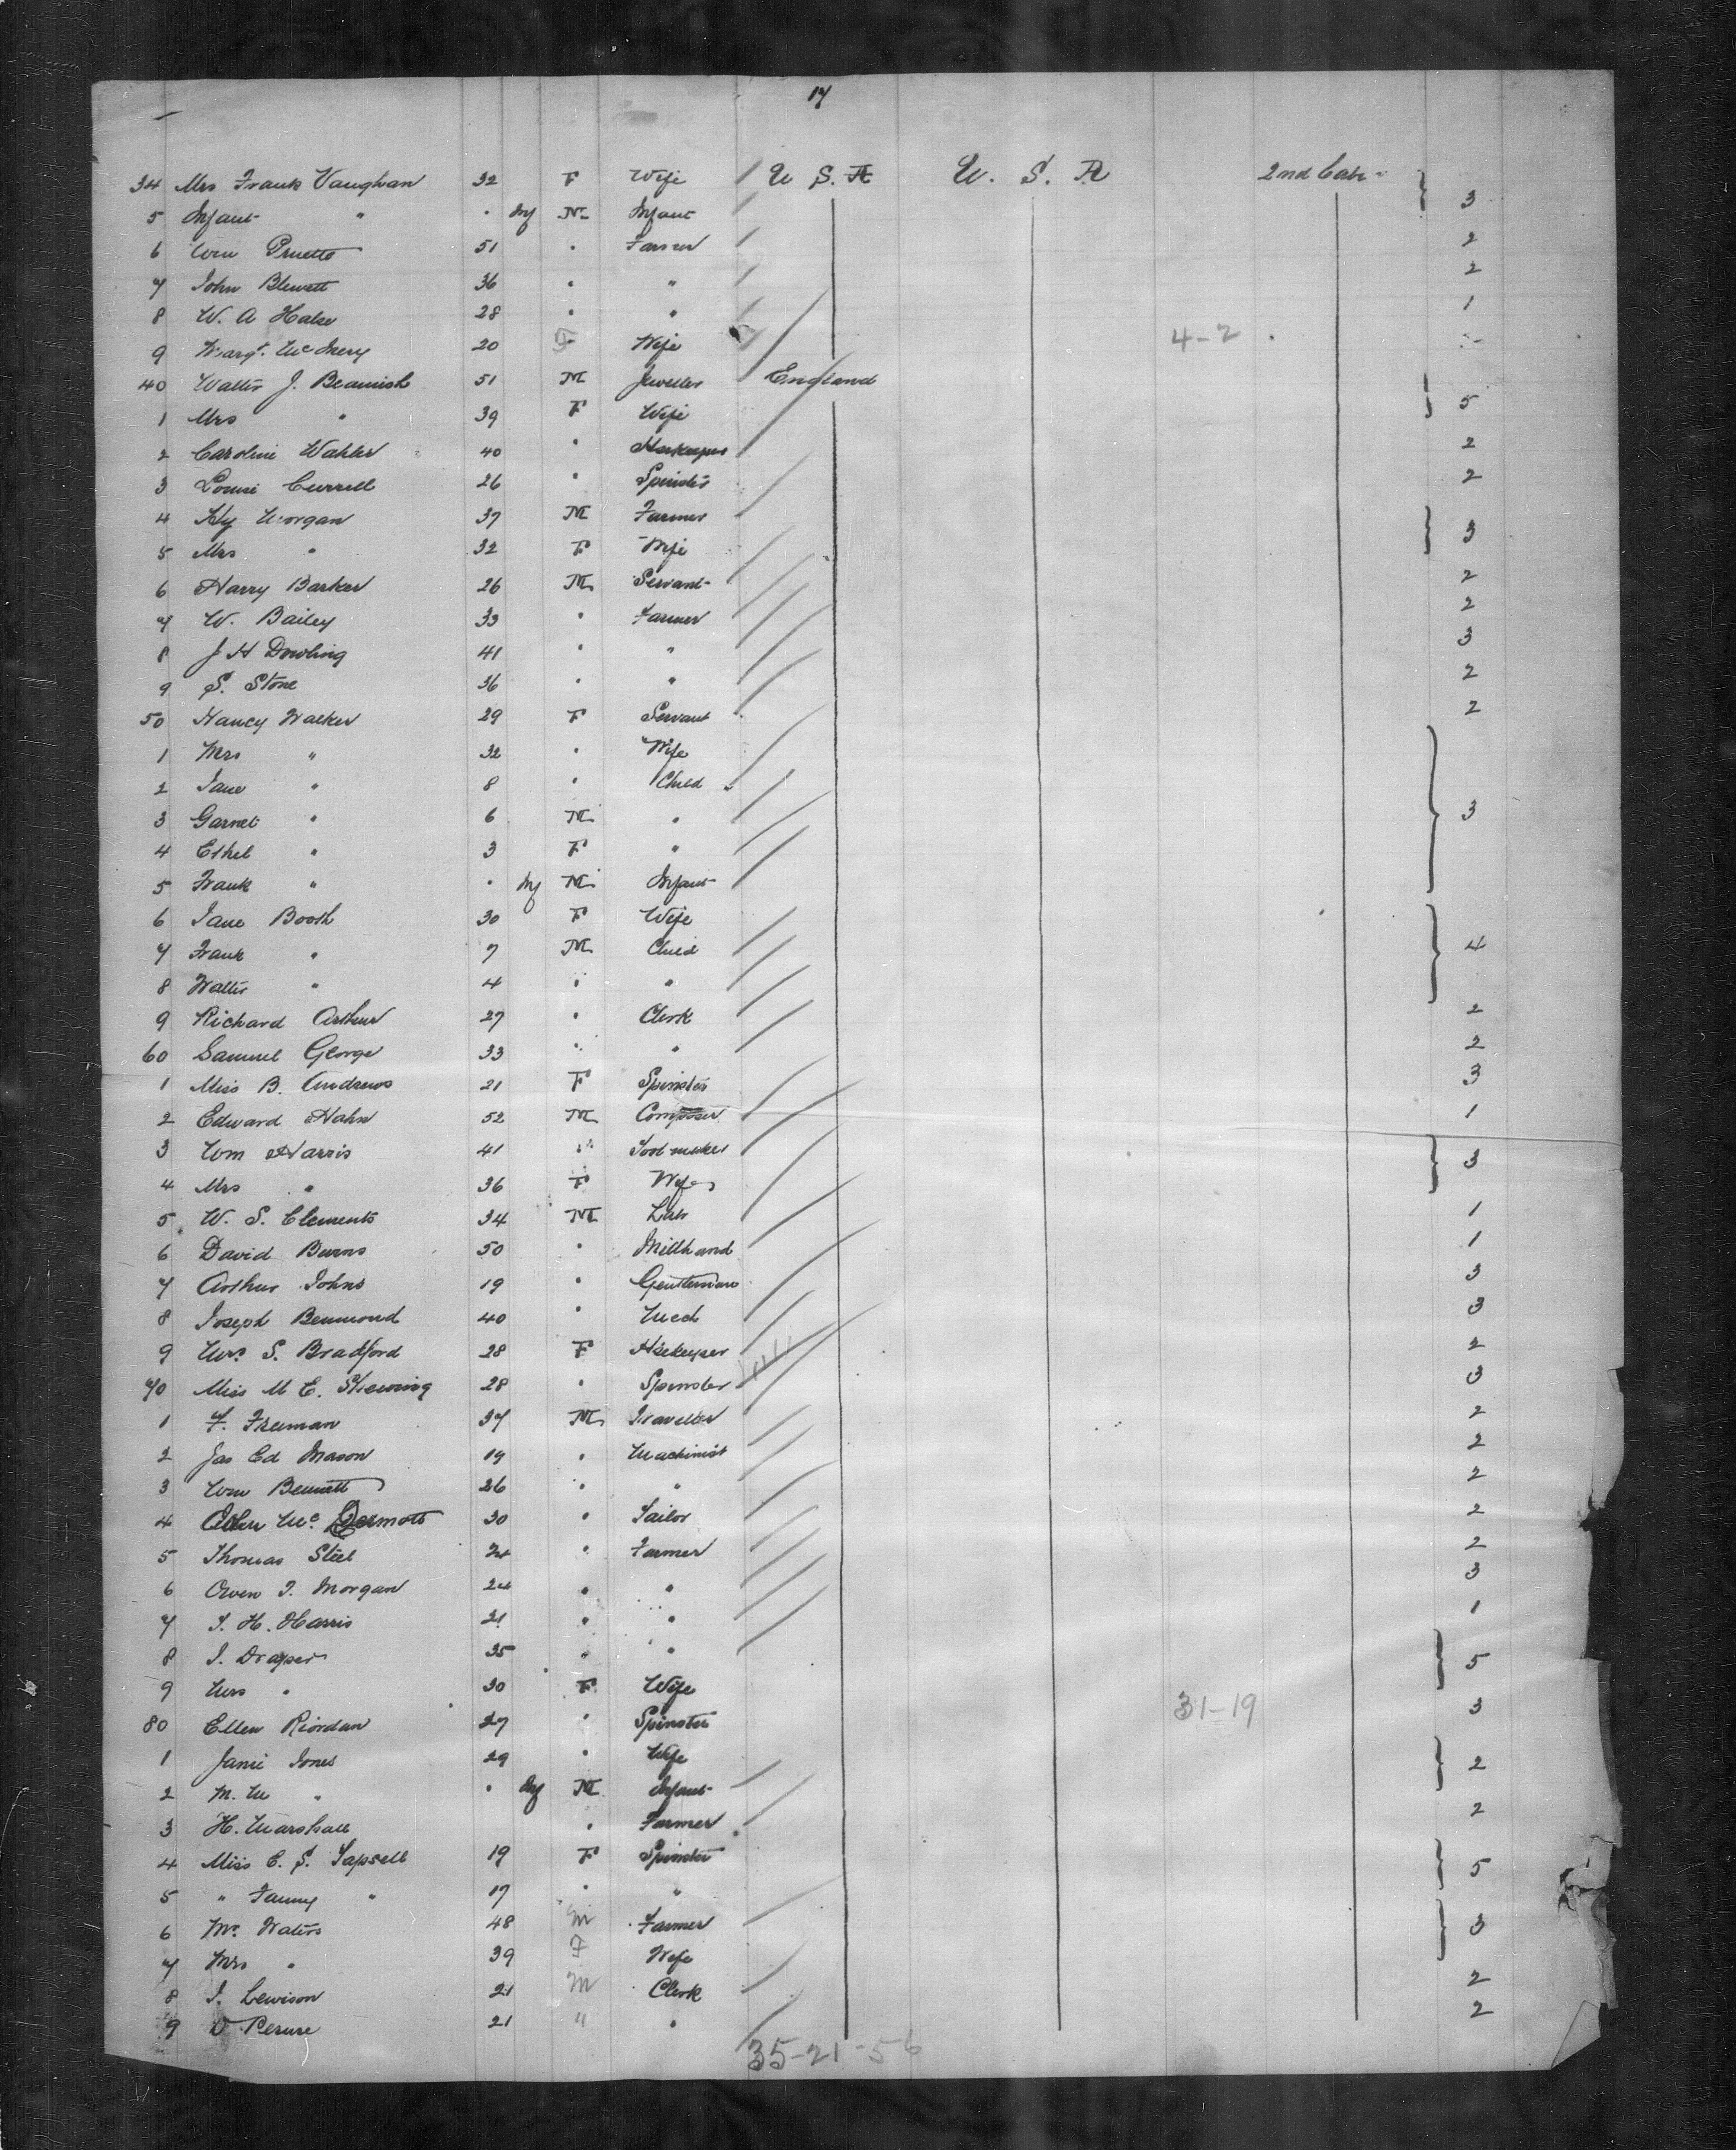 17
34 Mrs Frank Vaughan 32 F Wife U S. A U. S. A 2nd Cab. 3
5 Infant " . Inf M Infant
6 Wm Pruetto 51 . Farmer 2
7 John Blewett 36 . " 2
8 W. A Halse 28 . " 1
9 Margt. Mc 20 F Wife 4-2
40 Walter J. Beamish 51 M Jeweller England 5
1 Mrs " 39 F Wife
2 Caroline Wahler 40 " Hsekeeper 2
3 Louise Currell 26 " Spinster 2
4 Hy Morgan 37 M Farmer 3
5 Mrs " 32 F Wife
6 Harry Barker 26 M Servant 2
7 W. Bailey 33 " Farmer 2
8 J H Dowling 41 " " 3
9 S. Stone 36 " " 2
50 Nancy Walker 29 F Servant 2
1 Mrs " 32 . Wife
2 Jane " 8 " Child
3 Garnet " 6 M " 3
4 Ethel " 3 F "
5 Frank " . Inf M Infant
6 Jane Booth 30 F Wife
7 Frank " 7 M Child 4
8 Walter " 4 " "
9 Richard Arthur 27 " Clerk 2
60 Samuel George 33 " " 2
1 Miss B. Andrews 21 F Spinster 3
2 Edward Hahn 52 M Composer 1
3 Wm Harris 41 " Toolmaker 3
4 Mrs " 36 F Wife
5 W. S. Clements 34 M Labr 1
6 David Burns 50 " Millhand 1
7 Arthur Johns 19 " Gentleman 3
8 Joseph Benmond 40 " Mech 3
9 Mrs. S. Bradford 28 F Hsekeeper 2
70 Miss M E. 28 " Spinster 3
1 F. Freeman 37 M Traveller 2
2 Jas Ed Mason 19 " Machinist 2
3 Wm Bennett 26 " " 2
4 Mc Dermott 30 " Tailor 2
5 Thomas Steel 24 " Farmer 2
6 Owen T. Morgan 24 " " 3
7 T. H. Harris 21 " " 1
8 J. Draper 35 " " 5
9 Mrs " 30 F Wife
80 Ellen Riordan 27 " Spinster 31-19 3
1 Janie Jones 29 " Wife 2
2 M. M " . Inf M Infant
3 H. Marshall " Farmer 2
4 Miss E. S. Tapsell 19 F Spinster 5
5 " Fanny " 17 " "
6 Mr. Waters 48 M Farmer 3
7 Mrs " 39 F Wife
8 J. Lewison 21 M Clerk 2
9 D 21 " " 2
35-21-56